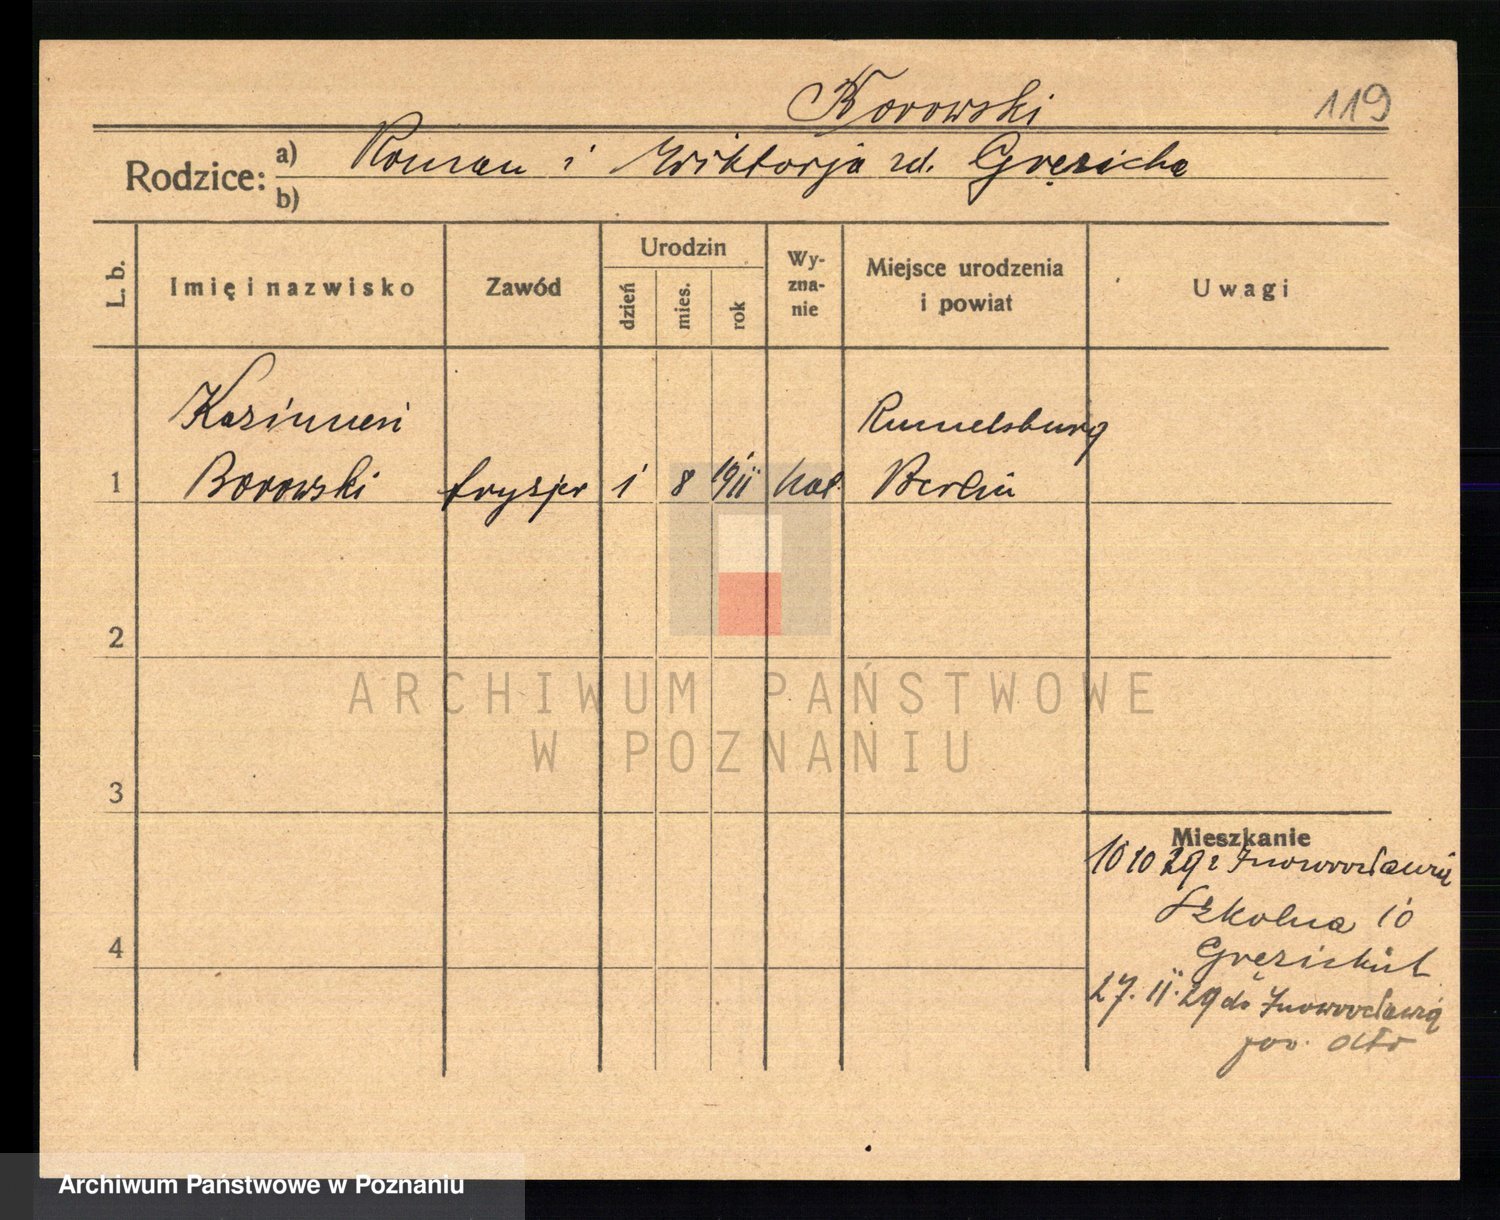 Borowski 119
Rodzice: a) Roman i Wiktorja zd. Gręzicka
b)
L. b. Imię i nazwisko Zawód Urodzin dzień mies. rok Wyznanie Miejsce urodzenia i powiat Uwagi
Kazimierz Rummelsburg
1 Borowski fryzjer 1 8 1911 kat. Berlin
2
ARCHIWUM PAŃSTWOWE
W POZNANIU
3
Mieszkanie
10 10 29 z Inowrocławia
Szkolna 10
4
27. 11. 29 do Inowrocławia
pow. dtto
Archiwum Państwowe w Poznaniu